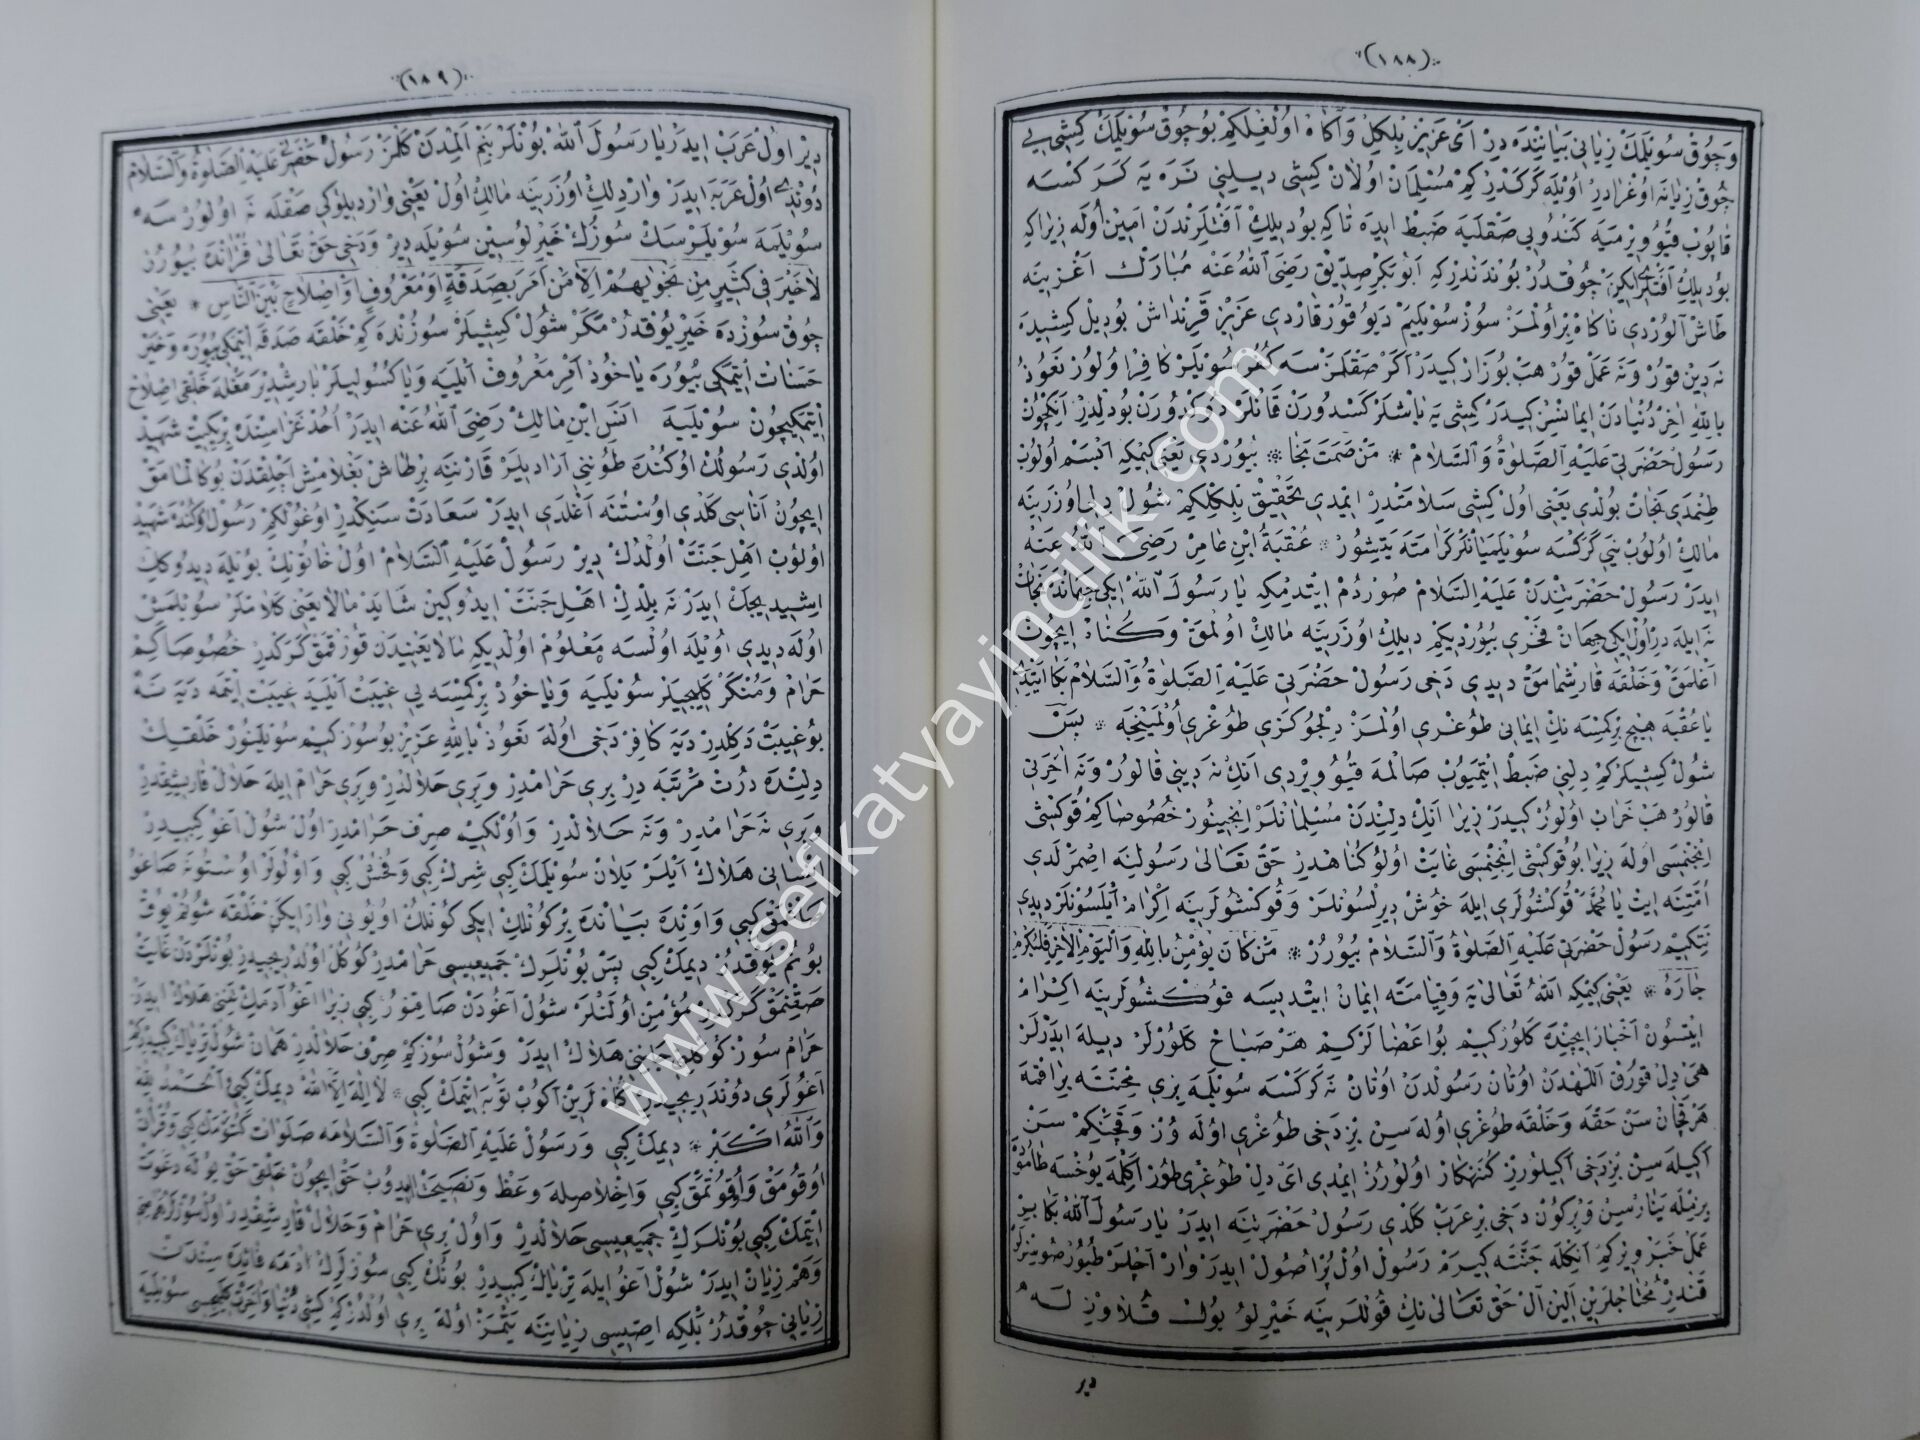 (١٨٨)
وَجُوقْ سُوْيلَمَكْ زِيَانِي بَيَانِنْدَه دِرْ اَیْ عَزِيزْ بِلْكِلْ وَآكَاهْ اُولْغِلْكِمْ بُو جُوقْ سُوْيلَمَكْ كِشِی يِی
جُوقْ زِيَانَه اُوغْرَادِرْ اُوْيلَه كَرَكْدِرْ كِمْ مُسْلِمَانْ اُولَانْ كِشِی دِيلِنِی نَرَه يَه كَرَكْسَه
قَاپُوبْ قُيُو وِيرْمَيَه كَنْدُويِی صَقْلَيَه ضَبْطْ ايدَه تَاكِه بُو دِيلِكْ آفَتْلَرِنْدَنْ اَمِينْ اُولَه زِيرَا كِه
بُو دِيلِكْ آفَتْلَرِی جُوقْدُرْ بُونْدَنْدِرْكِه اَبُو بَكْرِ صِدِّيقْ رَضِیَ اللهُ عَنْهُ مُبَارَكْ اَغْزِينَه
طَاشْ آلُورْدِی تَا كَاهْ بِرْ اُولْمَزْ سُوزْ سُوْيلَيَمْ دِيُو قُورْقَارْدِی عَزِيزْ قَرِنْدَاشْ بُو دِيلْ كِشِيدَه
نَه دِينْ قُورْ وَنَه عَمَلْ قُورْ هَپْ بُوزَارْ كِيدَرْ اَكَرْ صَقْلَمَزْسَه كُفُرْ سُوْيلَرْ كَافِرْ اُولُورْ نَعُوذُ
بِاللهِ آخِرْ دُنْيَادَنْ اِيمَانْسِزْ كِيدَرْ كِشِی يَه بَاشْلَرْ كَسْدُورَنْ قَانْلَرْ دُوكْدُورَنْ بُو دِلْدِرْ آنِكْچُونْ
رَسُولْ حَضْرَتِی عَلَيْهِ الصَّلَوةُ وَالسَّلَامْ * مَنْ صَمَتَ نَجَا * بُيُورْدِی يَعْنِی كِيمْكِه اَبْسَمْ اُولُوبْ
طِنْمَدِی نَجَاتْ بُولْدِی يَعْنِی اُولْ كِشِی سَلَامَتْدِرْ اِيمْدِی تَحْقِيقْ بِلْكِلْكِمْ شُولْ دِلِی اُوزَرِينَه
مَالِكْ اُولُوبْ نَی كَرَكْسَه سُوْيلَمَيَانْلَرْ كَرَامَتَه يَتِشُورْ * عُقْبَةُ ابْنِ عَامِرْ رَضِیَ اللهُ عَنْهُ
ايدَرْ رَسُولْ حَضْرَتِنْدَنْ عَلَيْهِ السَّلَامْ صُورْدُمْ ايتْدِمْكِه يَا رَسُولَ اللهْ ايكِی جِهَانْدَه نَجَاتْ
نَه ايلَه دِرْ اُولْ ايكِی جِهَانْ فَخْرِی بُيُورْدِيكِمْ دِيلِكْ اُوزَرِينَه مَالِكْ اُولْمَقْ وَكُنَاهْ ايچُونْ
آغْلَمَقْ وَخَلْقَه قَارِشْمَامَقْ دِيدِی دَخِی رَسُولْ حَضْرَتِی عَلَيْهِ الصَّلَوةُ وَالسَّلَامْ بَكَا ايتْدِی
يَا عُقْبَه هِيچْ بِرْكِمْسَه نِكْ اِيمَانِی طُوغْرِی اُولْمَزْ دِلْچُوكَزِی طُوغْرِی اُولْمَيِنْجَه * بَسْ
شُولْ كِشِيلَرْكِمْ دِلِنِی ضَبْطْ ايتْمَيُوبْ صَالْمَه قُيُو وِيرْدِی آنِكْ نَه دِينِی قَالُورْ وَنَه آخِرَتِی
قَالُورْ هَپْ خَرَابْ اُولُورْ كِيدَرْ زِيرَا آنِكْ دِلِنْدَنْ مُسْلِمَانْلَرْ اِنْجِينُورْ خُصُوصَا كِمْ قُوكْشِی
اِنْجِنْمَسِی اُولَه زِيرَا بُو قُوكْشِی اِنْجِتْمَسِی غَايَتْ اُولُو كُنَاهْدِرْ حَقْ تَعَالَی رَسُولِنَه اِصْمَرْلَدِی
اُمَّتِنَه اِيتْ يَا مُحَمَّدْ قُوكْشُولَرِی ايلَه خُوشْ دِيرِلْسُونْلَرْ وَقُوكْشُولَرِينَه اِكْرَامْ اَيْلَسُونْلَرْ دِيدِی
نِتَكِيمْ رَسُولْ حَضْرَتِی عَلَيْهِ الصَّلَوةُ وَالسَّلَامْ بُيُورُرْ * مَنْ كَانَ يُؤْمِنُ بِاللهِ وَالْيَوْمِ الْاٰخِرِ فَلْيُكْرِمْ
جَارَهُ * يَعْنِی كِيمْكِه اَللهُ تَعَالَی يَه وَقِيَامَتَه اِيمَانْ اِيتْدِيسَه قُوكْشُولَرِينَه اِكْرَامْ
ايتْسُونْ اَخْبَارْ ايچِنْدَه كَلُورْكِيمْ بُو اَعْضَالَرْكِيمْ هَرْ صَبَاحْ كَلُورْلَرْ دِيلَه ايدَرْلَرْ
هَیْ دِلْ قُورْقْ اَللّهْدَنْ اُوتَانْ رَسُولْدَنْ اُوتَانْ نَه كَرَكْسَه سُوْيلَمَه بِزِی مِحْنَتَه بِرَاقْمَه
هَرْ قَچَانْ سَنْ حَقَّه وَخَلْقَه طُوغْرِی اُولَه سِنْ بِزْ دَخِی طُوغْرِی اُولَه وُزْ وَقَچَنْكِمْ سَنْ
اَكِيلَه سِنْ بِزْدَخِی اَكِيلُورِزْ كُنَهْكَارْ اُولُورُزْ اِيمْدِی اَیْ دِلْ طُوغْرِی طُورْ اَكِلْمَه يُوخْسَه طَامُودَه
بِزِمْلَه يَنَارْسِنْ وَبِرْكُونْ دَخِی بِرْ عَرَبْ كَلْدِی رَسُولْ حَضْرَتِنَه ايدَرْ يَا رَسُولَ اللهْ بَكَا بِرْ
عَمَلْ خَبَرْ وِيرْكِمْ آنِكْلَه جَنَّتَه كِيرَمْ رَسُولْ اُولْ ايدَرْ وَارْ آچْلَرْ طُيُورْ صُوسِزْلَرِ
قَنْدِرْ مُحْتَاجْلَرِينْ اَلِينْ آلْ حَقْ تَعَالَی نِكْ قُولْلَرِينَه خَيْرْلُو يُولْ قُلَاوُزْلَه
دير
(١٨٩)
دِيرْ اُولْ عَرَبْ ايدَرْ يَا رَسُولَ اللهْ بُونْلَرْ بَنِمْ اَلِمْدَنْ كَلْمَزْ رَسُولْ حَضْرَتِی عَلَيْهِ الصَّلَوةُ وَالسَّلَامْ
دُونْدِی اُولْ عَرَبَه ايدَرْ وَارْ دِلِكْ اُوزَرِينَه مَالِكْ اُولْ يَعْنِی وَارْ دِيلُوكِی صَقْلَه نَه اُولُورْسَه
سُوْيلَمَه سُوْيلَرْسَكْ سُوزُكْ خَيْرْلُوسِينْ سُوْيلَه دِيرْ وَدَخِی حَقْ تَعَالَی قُرْاٰنْدَه بُيُورُرْ
لَا خَيْرَ فِی كَثِيرٍ مِنْ نَجْوٰيهُمْ اِلَّا مَنْ اَمَرَ بِصَدَقَةٍ اَوْ مَعْرُوفٍ اَوْ اِصْلَاحٍ بَيْنَ النَّاسِ * يَعْنِی
چُوقْ سُوزْدَه خَيْرْ يُوقْدُرْ مَكَرْ شُولْ كِشِيلَرْ سُوزُنْدَه كِمْ خَلْقَه صَدَقَه ايتْمَكِی بُيُورَه وَخَيْرْ
حَسَنَاتْ ايتْمَكِی بُيُورَه يَاخُودْ اَمْرِ مَعْرُوفْ اَيْلَيَه وَيَا كُسُولِيلَرْ بَارِشْدِيرْمَقْلَه خَلْقِی اِصْلَاحْ
ايتْمَكِيچُونْ سُوْيلَيَه اَنَسِ ابْنِ مَالِكْ رَضِیَ اللهُ عَنْهُ ايدَرْ اُحُدْ غَزَاسِنْدَه بِرْ يِكِيتْ شَهِيدْ
اُولْدِی رَسُولُكْ اُوكُنْدَه طُونِنِی آرَادِيلَرْ قَارْنِنَه بِرْ طَاشْ بَغْلَامِشْ آچْلِقْدَنْ بُوكَالْمَامَقْ
ايچُونْ آنَاسِی كَلْدِی اُوسْتُنَه آغْلَدِی ايدَرْ سَعَادَتْ سَنِكْدِرْ اُوغُولْكِمْ رَسُولْ اُوكُنْدَه شَهِيدْ
اُولُوبْ اَهْلِ جَنَّتْ اُولْدُكْ دِيرْ رَسُولْ عَلَيْهِ السَّلَامْ اُولْ خَاتُونِكْ بُويْلَه دِيدُوكِنْ
اِشِيدِيجَكْ ايدَرْ نَه بِلْدِكْ اَهْلِ جَنَّتْ ايدُوكِينْ شَايَدْ مَالَا يَعْنِی كَلَامْلَرْ سُوْيلَمِشْ
اُولَه دِيدِی اُوْيلَه اُولْسَه مَعْلُومْ اُولْدِيكِه مَالَا يَعْنِيدَنْ قُورْقْمَقْ كَرَكْدِرْ خُصُوصَا كِمْ
حَرَامْ وَمُنْكَرْ سُوْيلَيَه وَيَاخُودْ بِرْكِمْسَه يِی غِيبَتْ اَيْلَيَه غِيبَتْ ايتْمَه دِيَه سَه
بُو غِيبَتْ دَكِلْدِرْ دِيَه كَافِرْ دَخِی اُولَه نَعُوذُ بِاللهِ عَزِيزْ بُو سُوزْكِيمْ سُوْيلَنُورْ خَلْقِكْ
دِلِنْدَه دُرْتْ مَرْتَبَه دِرْ بِرِی حَرَامْدِرْ وَبِرِی حَلَالْدِرْ وَبِرِی حَرَامْ ايلَه حَلَالْ قَارِشِقْدِرْ
وَبِرِی نَه حَرَامْدِرْ وَنَه حَلَالْدِرْ وَاُولْكِيمْ صِرْفْ حَرَامْدِرْ اُولْ شُولْ آغُو كِبِيدِرْ
اِنْسَانِی هَلَاكْ اَيْلَرْ يَلَانْ سُوْيلَمَكْ كِبِی شِرْكْ كِبِی وَفُحْشْ كِبِی وَاُولُولَرْ اُوسْتُونَه صَاغُو
كِبِی وَاَوِنْدَه بَيَانْدَه بِرْ كُونْلِكْ ايكِی كُونْلِكْ اُويُونِی وَارْ ايكَنْ خَلْقَه شُولُمْ يُوقْ
بُونُمْ يُوقْدُرْ دِيمَكْ كِبِی بَسْ بُونْلَرِكْ جَمِيعِيسِی حَرَامْدِرْ كُوكُلْ اُولْدُرِيجِيدِرْ بُونْلَرْدَنْ غَايَتْ
صَقِنْمَقْ كَرَكْدِرْ مُؤْمِنْ اُولَنْلَرْ شُولْ آغُودَنْ صَاقِنُورْ كِبِی زِيرَا آغُو آدَمِكْ تَنِنِی هَلَاكْ ايدَرْ
حَرَامْ سُوزْ كُوكْلِی جَانِنِی هَلَاكْ ايدَرْ وَشُولْ سُوزْكِمْ صِرْفْ حَلَالْدِرْ هَمَانْ شُولْ تِرْيَاكْ كِبِيدِرْكِمْ
آغُولَرِی دُونْدَرِيجِيدِرْ كُنَاهْلَرِينْ آكُوبْ تَوْبَه ايتْمَكْ كِبِی * لَا اِلٰهَ اِلَّا اللهْ دِيمَكْ كِبِی اَلْحَمْدُ لِلّٰهِ
وَاللهُ اَكْبَرْ * دِيمَكْ كِبِی وَرَسُولْ عَلَيْهِ الصَّلَوةُ وَالسَّلَامَه صَلَوَاتْ كَتُورْمَكْ كِبِی وَقُرْاٰنْ
اُوقُومَقْ وَاُوقُوتْمَقْ كِبِی وَاِخْلَاصِلَه وَعْظْ وَنَصِيحَتْ ايدُوبْ حَقْ ايچُونْ خَلْقِی حَقْ يُولَه دَعْوَتْ
ايتْمَكْ كِبِی بُونْلَرِكْ جَمِيعِيسِی حَلَالْدِرْ وَاُولْ بِرِی حَرَامْ وَحَلَالْ قَارِشِقْدِرْ اُولْ سُوزْلَرْ هَمْ
وَهَمْ زِيَانْ ايدَرْ شُولْ آغُو ايلَه تِرْيَاكْ كِبِيدِرْ بُونُكْ كِبِی سُوزْلَرِكْ آدَمَه فَائِدَه سِنْدَنْ
زِيَانِی چُوقْدُرْ بَلْكِه اَصِيسِی زِيَانِنَه يَتْمَزْ اُولَه بِرِی اُولْدُرْكِه كِشِی دُنْيَا وَآخِرَتْ سُوْيلَيَه
www.sefkatyayincilik.com